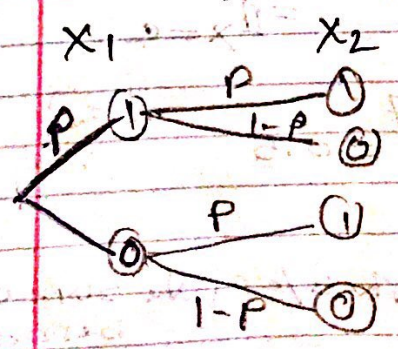 X1 X2
P 1
P 1 1-P
0
P 1
0
1-P 0